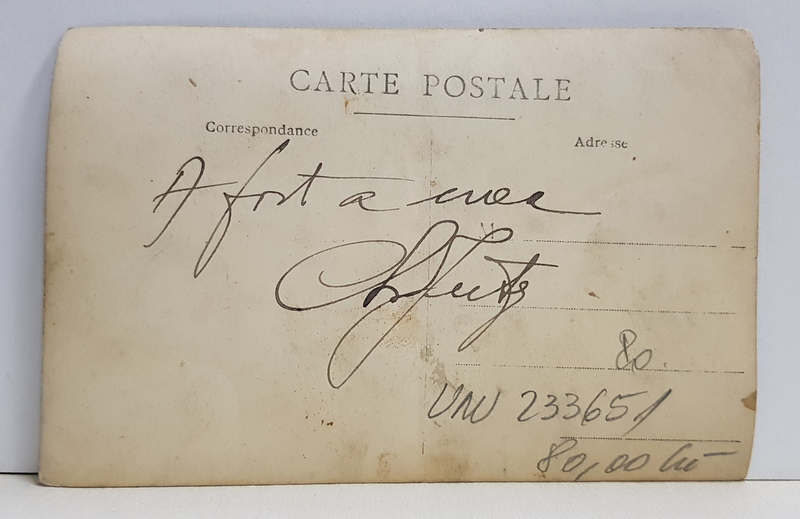 CARTE POSTALE
Correspondance
Adresse
A fost a mea
80.
233651
80,00 lei